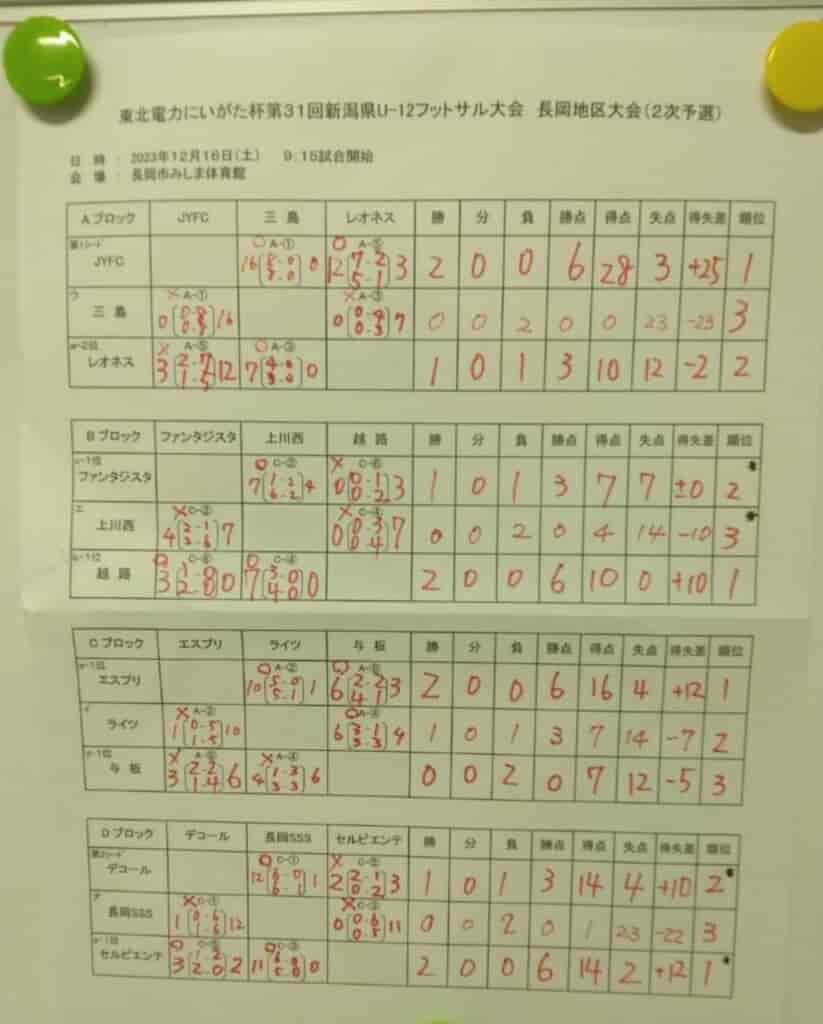 東北電力にいがた杯第31回新潟県U-12フットサル大会 長岡地区大会(2次予選)
日 時 : 2023年12月16日(土) 9:15試合開始
会 場 : 長岡市みしま体育館
Aブロック JYFC 三 島 レオネス 勝 分 負 勝点 得点 失点 得失差 順位
JYFC ○A-① 16 0 ○A-⑤ 12 7-2 5-1 3 2 0 0 6 28 3 +25 1
三 島 ×A-① 0 16 ×A-③ 0 0-4 0-3 7 0 0 2 0 0 23 -23 3
レオネス ×A-⑤ 3 2-7 1-5 12 ○A-③ 7 0 1 0 1 3 10 12 -2 2
Bブロック ファンタジスタ 上川西 越 路 勝 分 負 勝点 得点 失点 得失差 順位
ファンタジスタ ○C-② 7 1-2 6-2 4 ×C-⑥ 0 0-1 0-2 3 1 0 1 3 7 7 ±0 2
上川西 ×C-② 4 2-1 7 ×C-④ 0 0-3 0-4 7 0 0 2 0 4 14 -10 3
越 路 ○C-⑥ 3 0 ○C-④ 7 3-0 4-0 0 2 0 0 6 10 0 +10 1
Cブロック エスプリ ライツ 与 板 勝 分 負 勝点 得点 失点 得失差 順位
エスプリ ○A-② 10 5-0 5-1 1 ○A-⑥ 6 2-2 4-1 3 2 0 0 6 16 4 +12 1
ライツ ×A-② 1 0-5 1-5 10 ○A-④ 6 3-1 3-3 4 1 0 1 3 7 14 -7 2
与 板 ×A-⑥ 3 2-2 1-4 6 ×A-④ 4 1-3 3-3 6 0 0 2 0 7 12 -5 3
Dブロック デコール 長岡SSS セルピエンテ 勝 分 負 勝点 得点 失点 得失差 順位
デコール ○C-① 12 6-0 6-1 1 ×C-⑤ 2 2-1 0-2 3 1 0 1 3 14 4 +10 2
長岡SSS ×C-① 1 0-6 1-6 12 ×C-③ 0 0-6 0-5 11 0 0 2 0 1 23 -22 3
セルピエンテ ○C-⑤ 3 1-2 2-0 2 ○C-③ 11 0 2 0 0 6 14 2 +12 1